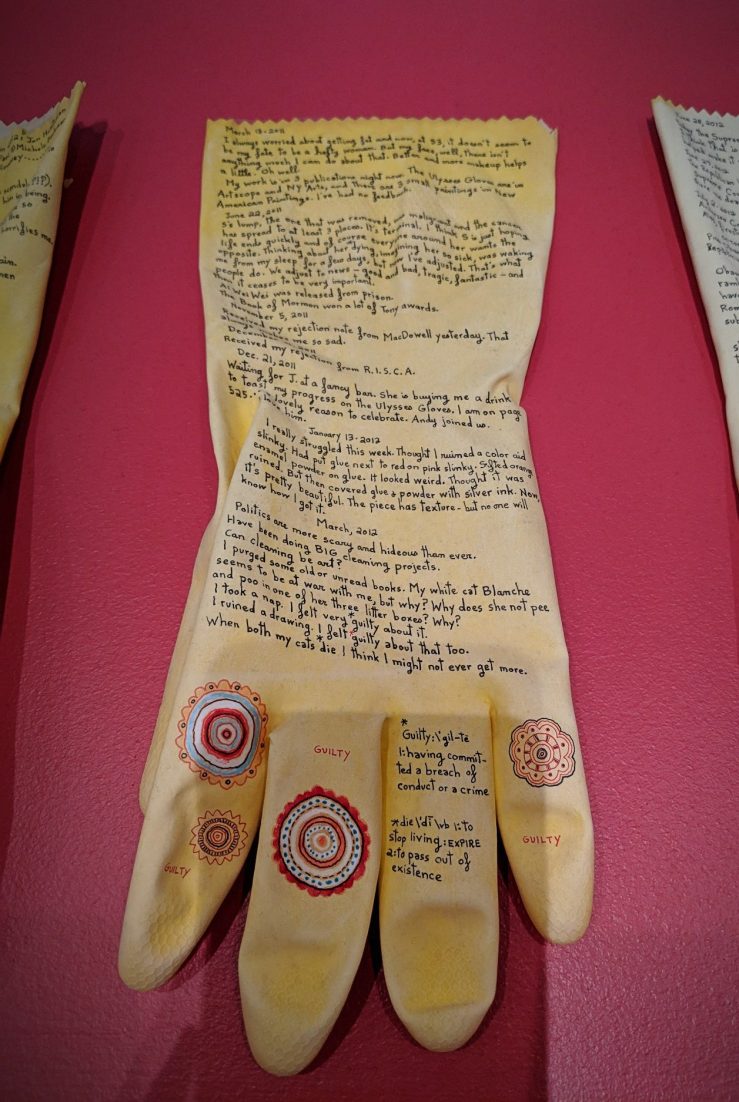 March 13-2011
I always worried about getting fat and now, at 53, it doesn't seem to
be my fate to be a hefty woman. But my face, well, there isn't
anything much I can do about that. Botox and more makeup helps
a little. Oh well.
My work is in 3 publications right now. The Ulysses Gloves are in
Artscope and NY Arts, and there are 3 small paintings in New
American Paintings. I've had no feedback.
June 22, 2011
S's lump, the one that was removed, was malignant and the cancer
has spread to at least 3 places. It's terminal. I think S is just hoping
life ends quickly and of course everyone around her wants the
opposite. Thinking about her dying, imagining her so sick, was waking
me from my sleep for a few days, but now I've adjusted. That's what
people do. We adjust to news - good and bad, tragic, fantastic - and
then it ceases to be very important.
Ai Wei Wei was released from prison.
The Book of Mormon won a lot of Tony awards.
November 5, 2011
Received my rejection note from MacDowell yesterday. That
always me so sad.
December 2011
Received my rejection from R.I.S.C.A.
Dec. 21, 2011
Waiting for J. at a fancy bar. She is buying me a drink
to toast my progress on the Ulysses Gloves. I am on page
525. lovely reason to celebrate. Andy joined us.
him.
January 13-2012
I really struggled this week. Thought I ruined a color aid
slinky. Had put glue next to red on pink slinky. Sifted orange
enamel powder on glue. It looked weird. Thought it was
ruined. But then covered glue & powder with silver ink. Now,
it's pretty beautiful. The piece has texture - but no one will
know how I got it.
March, 2012
Politics are more scary and hideous than ever.
Have been doing BIG cleaning projects.
Can cleaning be art?
I purged some old or unread books. My white cat Blanche
seems to be at war with me, but why? Why does she not pee
and poo in one of her three litter boxes? Why?
I took a nap. I felt very *guilty about it.
I ruined a drawing. I felt *guilty about that too.
When both my cats *die I think I might not ever get more.
GUILTY
GUILTY
*
Guilty:\'gil-tē
1: having commit-
ted a breach of
conduct or a crime
*die\'dī\vb 1: to
stop living: EXPIRE
2: to pass out of
existence
GUILTY
June 28, 2012